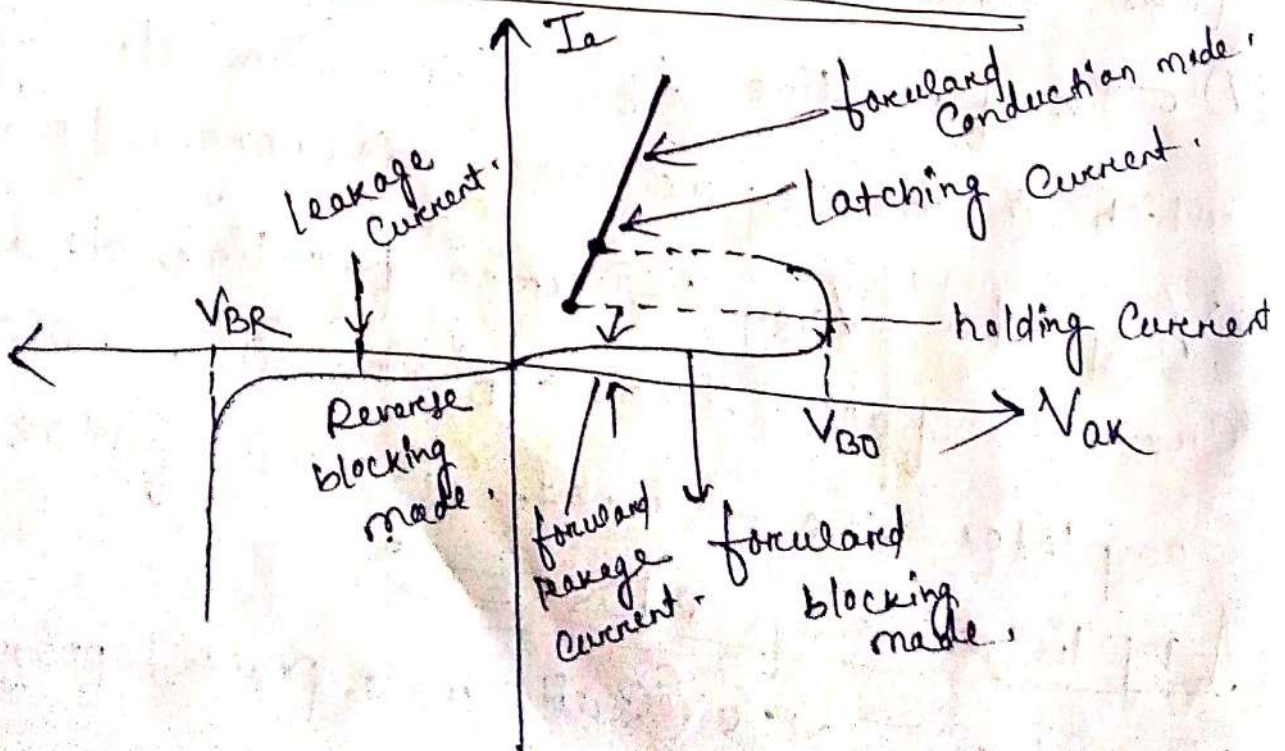 Ia
forward
Conduction mode.
Latching Current.
leakage
Current.
VBR
holding Current
Reverse
blocking
mode.
VBO
Vak
forward
leakage
Current.
forward
blocking
mode.